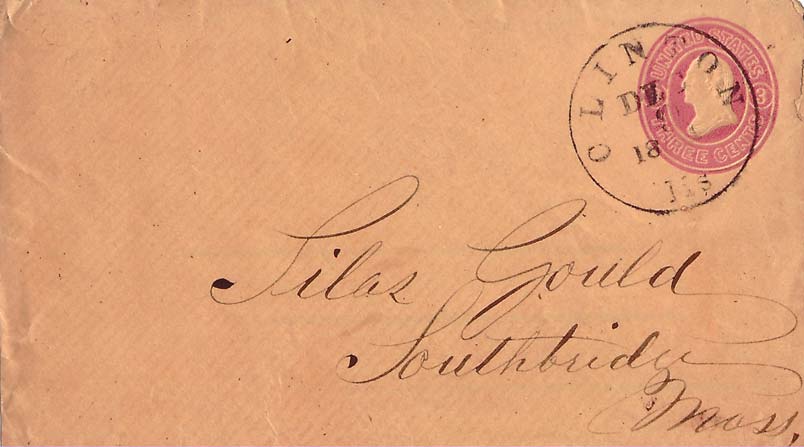 CLINTON
UNITED STATES
THREE CENTS
18
Silas Gould
Southbridge
Mass.